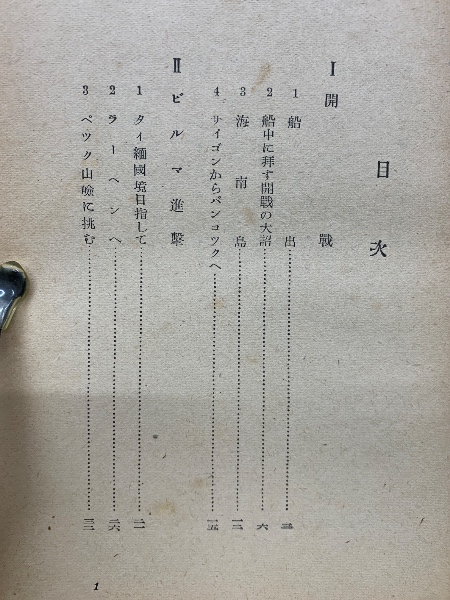 目次
Ⅰ 開戰
1 船出……三
2 船中に拜す開戰の大詔……六
3 海南島……一二
4 サイゴンからバンコツクへ……一五
Ⅱ ビルマ進擊
1 タイ緬國境目指して……二一
2 ラーヘンへ……二六
3 ペツク山嶮に挑む……三二
1